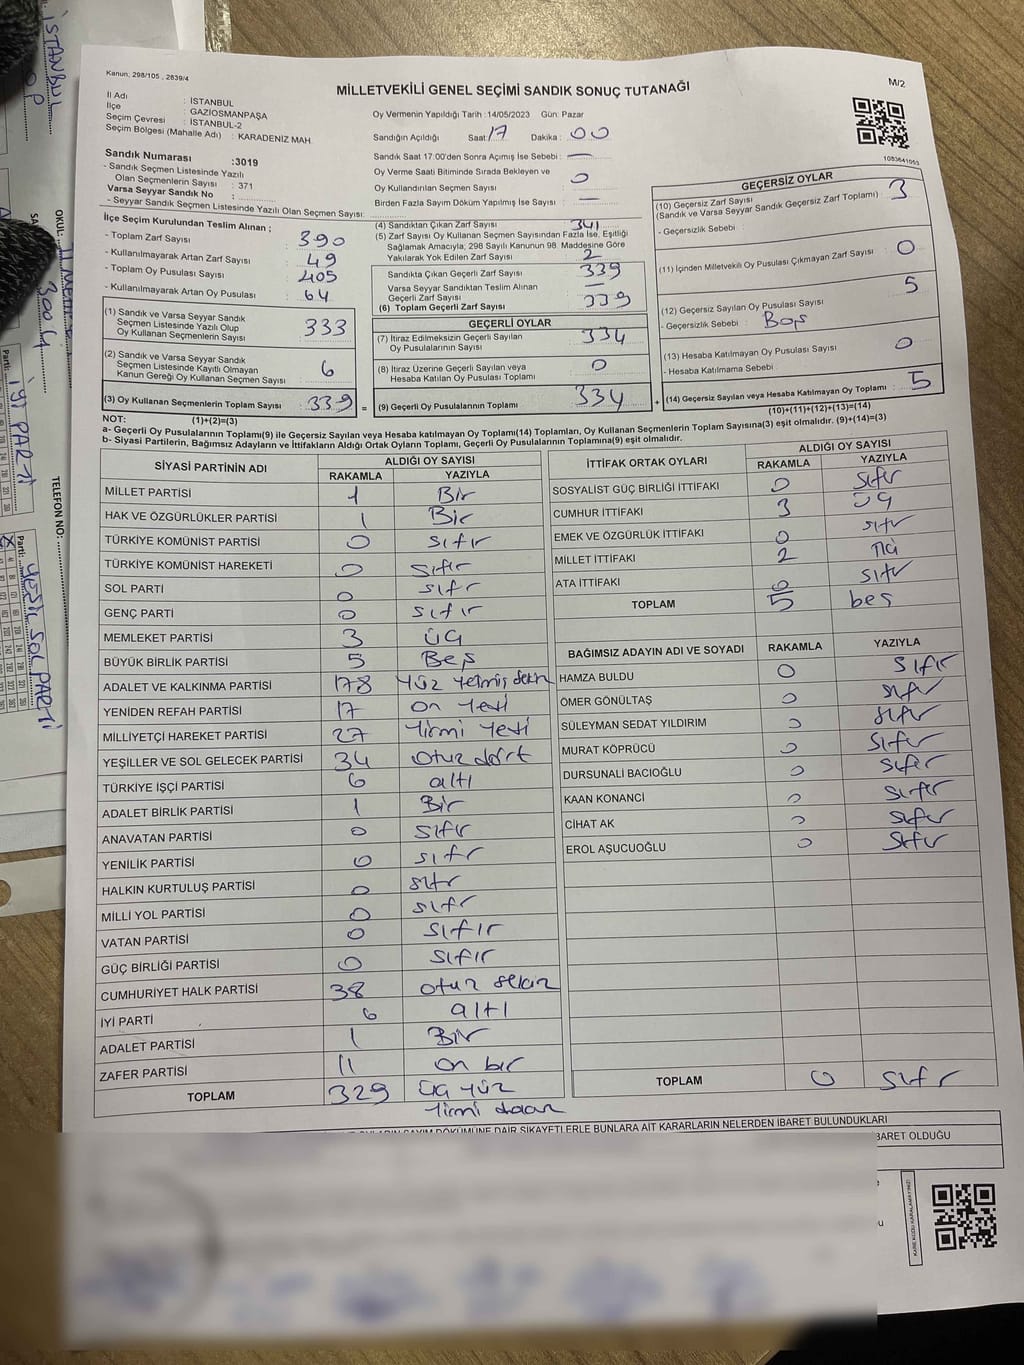 Kanun; 298/105 , 2839/4
MİLLETVEKİLİ GENEL SEÇİMİ SANDIK SONUÇ TUTANAĞI
M/2
İl Adı : İSTANBUL
İlçe : GAZİOSMANPAŞA
Seçim Çevresi : İSTANBUL-2
Seçim Bölgesi (Mahalle Adı) : KARADENİZ MAH.
Oy Vermenin Yapıldığı Tarih :14/05/2023 Gün: Pazar
Sandığın Açıldığı Saat: 17 Dakika : 00
Sandık Saat 17:00'den Sonra Açımış İse Sebebi : —
Oy Verme Saati Bitiminde Sırada Bekleyen ve
Oy Kullandırılan Seçmen Sayısı : 0
Birden Fazla Sayım Döküm Yapılmış İse Sayısı : —
1083641053
Sandık Numarası :3019
- Sandık Seçmen Listesinde Yazılı
Olan Seçmenlerin Sayısı : 371
Varsa Seyyar Sandık No :
- Seyyar Sandık Seçmen Listesinde Yazılı Olan Seçmen Sayısı:
İlçe Seçim Kurulundan Teslim Alınan ;
- Toplam Zarf Sayısı : 390
- Kullanılmayarak Artan Zarf Sayısı : 49
- Toplam Oy Pusulası Sayısı : 405
- Kullanılmayarak Artan Oy Pusulası : 64
(1) Sandık ve Varsa Seyyar Sandık
Seçmen Listesinde Yazılı Olup
Oy Kullanan Seçmenlerin Sayısı : 333
(2) Sandık ve Varsa Seyyar Sandık
Seçmen Listesinde Kayıtlı Olmayan
Kanun Gereği Oy Kullanan Seçmen Sayısı : 6
(3) Oy Kullanan Seçmenlerin Toplam Sayısı : 339 =
(1)+(2)=(3)
(4) Sandıktan Çıkan Zarf Sayısı : 341
(5) Zarf Sayısı Oy Kullanan Seçmen Sayısından Fazla İse, Eşitliği
Sağlamak Amacıyla; 298 Sayılı Kanunun 98. Maddesine Göre
Yakılarak Yok Edilen Zarf Sayısı : 2
Sandıkta Çıkan Geçerli Zarf Sayısı : 339
Varsa Seyyar Sandıktan Teslim Alınan
Geçerli Zarf Sayısı : —
(6) Toplam Geçerli Zarf Sayısı : 339
GEÇERLİ OYLAR
(7) İtiraz Edilmeksizin Geçerli Sayılan
Oy Pusulalarının Sayısı : 334
(8) İtiraz Üzerine Geçerli Sayılan veya
Hesaba Katılan Oy Pusulası Toplamı : 0
(9) Geçerli Oy Pusulalarının Toplamı : 334 +
GEÇERSİZ OYLAR
(10) Geçersiz Zarf Sayısı
(Sandık ve Varsa Seyyar Sandık Geçersiz Zarf Toplamı) : 3
- Geçersizlik Sebebi :
(11) İçinden Milletvekili Oy Pusulası Çıkmayan Zarf Sayısı : 0
(12) Geçersiz Sayılan Oy Pusulası Sayısı : 5
- Geçersizlik Sebebi : Boş
(13) Hesaba Katılmayan Oy Pusulası Sayısı : 0
- Hesaba Katılmama Sebebi :
(14) Geçersiz Sayılan veya Hesaba Katılmayan Oy Toplamı : 5
(10)+(11)+(12)+(13)=(14)
NOT:
a- Geçerli Oy Pusulalarının Toplamı(9) ile Geçersiz Sayılan veya Hesaba katılmayan Oy Toplamı(14) Toplamları, Oy Kullanan Seçmenlerin Toplam Sayısına(3) eşit olmalıdır. (9)+(14)=(3)
b- Siyasi Partilerin, Bağımsız Adayların ve İttifakların Aldığı Ortak Oyların Toplamı, Geçerli Oy Pusulalarının Toplamına(9) eşit olmalıdır.
SİYASİ PARTİNİN ADI ALDIĞI OY SAYISI
RAKAMLA YAZIYLA
MİLLET PARTİSİ 1 Bir
HAK VE ÖZGÜRLÜKLER PARTİSİ 1 Bir
TÜRKİYE KOMÜNİST PARTİSİ 0 sıfır
TÜRKİYE KOMÜNİST HAREKETİ 0 sıfır
SOL PARTİ 0 sıfır
GENÇ PARTİ 0 sıfır
MEMLEKET PARTİSİ 3 üç
BÜYÜK BİRLİK PARTİSİ 5 Beş
ADALET VE KALKINMA PARTİSİ 178 Yüz Yetmiş sekiz
YENİDEN REFAH PARTİSİ 17 on Yedi
MİLLİYETÇİ HAREKET PARTİSİ 27 Yirmi Yedi
YEŞİLLER VE SOL GELECEK PARTİSİ 34 otuz dört
TÜRKİYE İŞÇİ PARTİSİ 6 altı
ADALET BİRLİK PARTİSİ 1 Bir
ANAVATAN PARTİSİ 0 sıfır
YENİLİK PARTİSİ 0 sıfır
HALKIN KURTULUŞ PARTİSİ 0 sıfır
MİLLİ YOL PARTİSİ 0 sıfır
VATAN PARTİSİ 0 sıfır
GÜÇ BİRLİĞİ PARTİSİ 0 sıfır
CUMHURİYET HALK PARTİSİ 38 otuz sekiz
İYİ PARTİ 6 altı
ADALET PARTİSİ 1 Bir
ZAFER PARTİSİ 11 on bir
TOPLAM 329 üç yüz
Yirmi dokuz
İTTİFAK ORTAK OYLARI ALDIĞI OY SAYISI
RAKAMLA YAZIYLA
SOSYALİST GÜÇ BİRLİĞİ İTTİFAKI 0 sıfır
CUMHUR İTTİFAKI 3 üç
EMEK VE ÖZGÜRLÜK İTTİFAKI 0 sıfır
MİLLET İTTİFAKI 2 iki
ATA İTTİFAKI 0 sıfır
TOPLAM 5 beş
BAĞIMSIZ ADAYIN ADI VE SOYADI RAKAMLA YAZIYLA
HAMZA BULDU 0 sıfır
ÖMER GÖNÜLTAŞ 0 sıfır
SÜLEYMAN SEDAT YILDIRIM 0 sıfır
MURAT KÖPRÜCÜ 0 sıfır
DURSUNALİ BACIOĞLU 0 sıfır
KAAN KONANCİ 0 sıfır
CİHAT AK 0 sıfır
EROL AŞUCUOĞLU 0 sıfır
TOPLAM 0 sıfır
SAYIM DÖKÜMÜNE DAİR ŞİKAYETLERLE BUNLARA AİT KARARLARIN NELERDEN İBARET BULUNDUKLARI
İBARET OLDUĞU
KARE KODU KARALAMAYINIZ!
İSTANBUL
OKUL:
3004
TELEFON NO:
Parti: İYİ PARTİ
Parti: YEŞİL SOL PARTİ